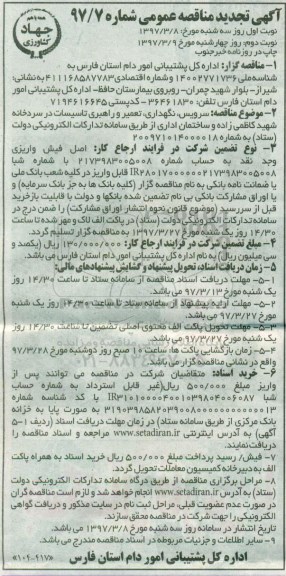 آگهی تجدید مناقصه عمومی شماره ۹۷/۷
نوبت اول: روز سه شنبه مورخ: ۱۳۹۷/۳/۸
نوبت دوم: روز چهارشنبه مورخ ۱۳۹۷/۳/۹
چاپ در روزنامه خبرجنوب
جهاد
کشاورزی
۱- مناقصه گزار: اداره کل پشتیبانی امور دام استان فارس به
شناسه ملی ۱۴۰۰۲۷۷۱۷۳۶ و شماره اقتصادی ۴۱۱۱۶۸۵۷۷۸۳ به نشانی:
شیراز- بلوار شهید چمران- روبروی بیمارستان حافظ- اداره کل پشتیبانی امور
دام استان فارس تلفن: ۳۶۴۶۱۸۳۰ - کدپستی ۷۱۹۴۶۱۶۶۴۵
۲- موضوع مناقصه: سرویس، نگهداری، تعمیر و راهبری تاسیسات در سردخانه
شهید کاظمی زاده و ساختمان اداری از طریق سامانه تدارکات الکترونیکی دولت
(ستاد) به شماره ۲۰۰۹۷۱۰۱۴۰۰۰۰۱۸
۳- نوع تضمین شرکت در فرایند ارجاع کار: اصل فیش واریزی
وجه نقد به حساب شماره ۲۱۷۳۹۸۳۰۰۵۰۰۸ با شماره شبا
قابل واریز در کلیه شعب بانک ملی
یا ضمانت نامه بانکی به نام مناقصه گزار (کلیه بانک ها به جز بانک سرمایه) و
یا اوراق مشارکت بانکی بی نام تضمین شده بانکها و دولت با قابلیت بازخرید
قبل از سررسید (موضوع قانون نحوه انتشار اوراق مشارکت) را ضمن درج در
سامانه تدارکات الکترونیکی دولت (ستاد) در پاکت الف لاک و مهر شده تا ساعت
۱۴/۳۰ روز یک شنبه مورخ ۱۳۹۷/۳/۲۷ به مناقصه گزار تسلیم گردد.
۴- مبلغ تضمین شرکت در فرایند ارجاع کار: ۱۳۰/۰۰۰/۰۰۰ ریال (یکصد و
سی میلیون ریال) به نام اداره کل پشتیبانی امور دام استان فارس می باشد.
۵- زمان دریافت اسناد، تحویل پیشنهاد و گشایش پیشنهادهای مالی:
۵-۱- مهلت دریافت اسناد مناقصه از سامانه ستاد تا ساعت ۱۴/۳۰ روز
یک شنبه مورخ ۱۳۹۷/۳/۱۳ می باشد.
۵-۲- مهلت ارایه پیشنهاد از سامانه ستاد تا ساعت ۱۴/۳۰ روز یک شنبه
مورخ ۱۳۹۷/۳/۲۷ می باشد.
۵-۳- مهلت تحویل پاکت الف محتوی اصل تضمین تا ساعت ۱۴/۳۰ روز
یک شنبه مورخ ۱۳۹۷/۳/۲۷ می باشد.
۵-۴- زمان بازگشایی پاکت ها: ساعت ۱۰ صبح روز دوشنبه مورخ ۱۳۹۷/۳/۲۸
واقع در نشانی مناقصه گزار می باشد.
۶- خرید اسناد: متقاضیان شرکت در مناقصه می توانند پس از
واریز مبلغ ۵۰۰/۰۰۰ ریال (غیر قابل استرداد به شماره حساب
شبا با کد شناسه شماره
به صورت پایا به خزانه
بانک مرکزی از طریق سامانه ستاد) در زمان مهلت دریافت اسناد (ردیف ۱-۵
آگهی) به آدرس اینترنتی www.setadiran.ir مراجعه و اسناد مناقصه را
دریافت نمایند.
۷- فیش/ رسید پرداخت مبلغ ۵۰۰/۰۰۰ ریال خرید اسناد به همراه پاکت
الف به دبیرخانه کمیسیون معاملات تحویل گردد.
۸- مراحل برگزاری مناقصه از طریق درگاه سامانه تدارکات الکترونیکی دولت
(ستاد) به آدرس www.setadiran.ir انجام خواهد شد و لازم است مناقصه گران
در صورت عدم عضویت قبلی، مراحل ثبت نام در سایت مذکور و دریافت گواهی
الکترونیکی را جهت شرکت در مناقصه محقق سازند.
تاریخ انتشار در سامانه روز سه شنبه مورخ ۱۳۹۷/۳/۸ می باشد.
۹- سایر اطلاعات و جزئیات مربوطه در اسناد مناقصه مندرج می باشد.
«۱۰۹-۹۱۷»
اداره کل پشتیبانی امور دام استان فارس